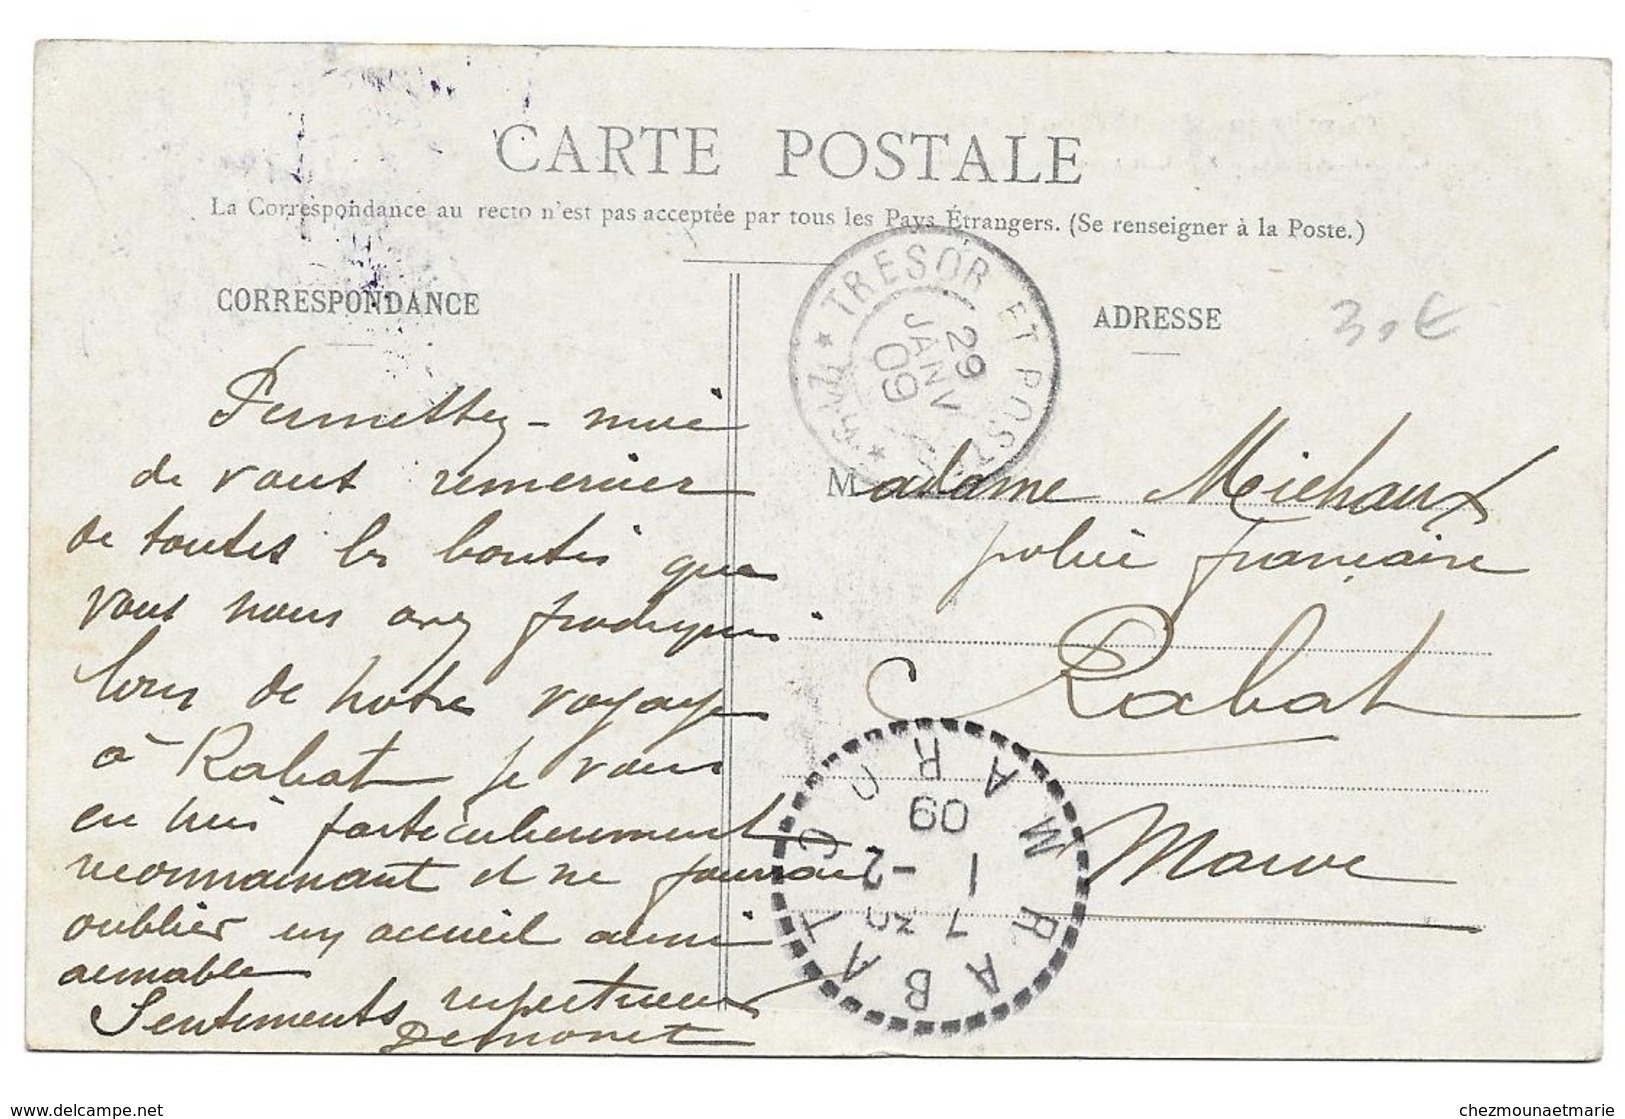 CARTE POSTALE
La Correspondance au recto n'est pas acceptée par tous les Pays Étrangers. (Se renseigner à la Poste.)
CORRESPONDANCE
Permettez-moi
de vous remercier
de toutes les bontés que
vous nous avez prodigués
lors de notre voyage
à Rabat je vous
en suis particulièrement
reconnaissant et ne pourrai
oublier un accueil aussi
aimable
Sentiments respectueux
Demonet
TRESOR ET POSTES
29
JANV
09
ADRESSE
30€
Madame Michaux
police française
Rabat
Maroc
RABAT
MAROC
7 30
1 -2
09
www.delcampe.net
chezmounaetmarie